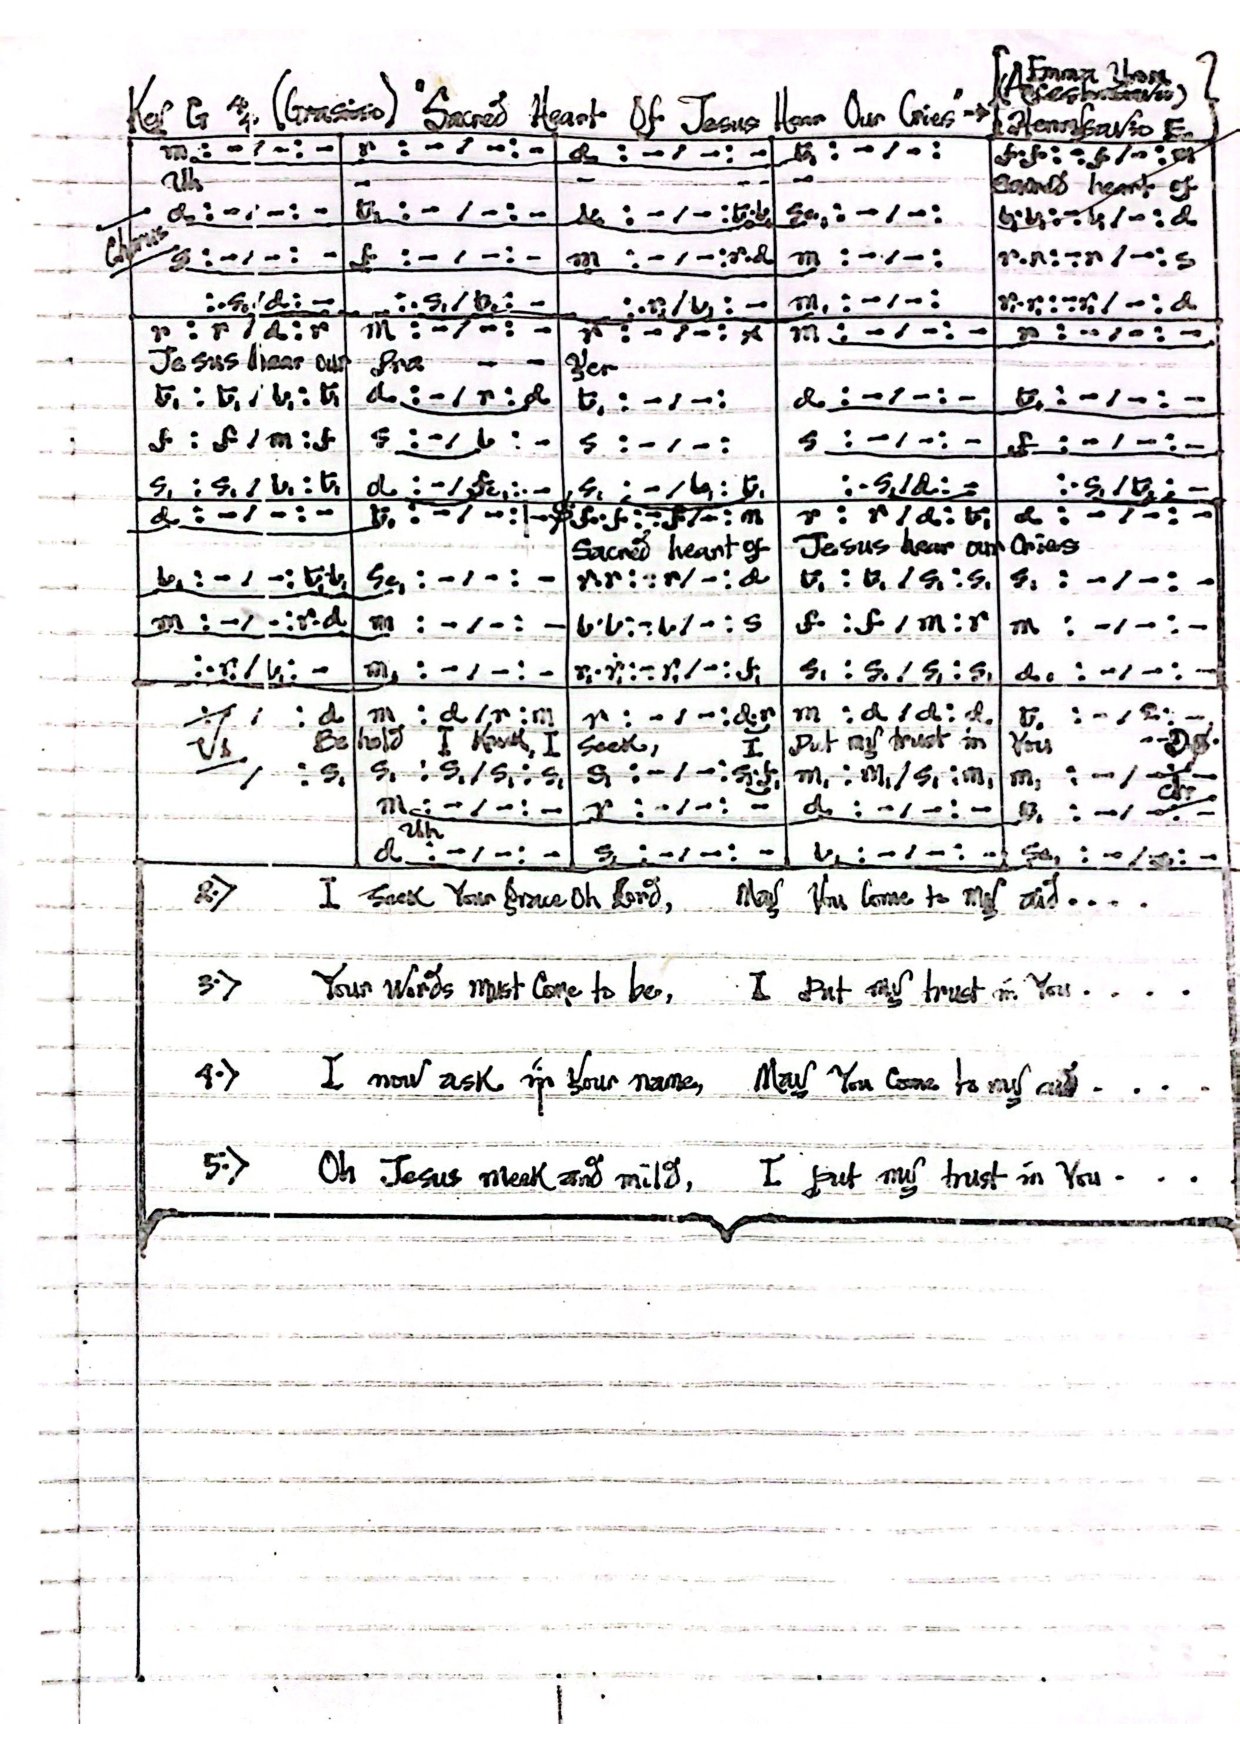 Key G 4/4 (Grasioso) "Sacred Heart Of Jesus Hear Our Cries" →
Chorus
m : – / – : – r : – / – : – d : – / – : – t₁ : – / – : f.f : – .f / – : m
Uh – – – – – Sacred heart of
d : – / – : – t₁ : – / – : – – / – : t₁.l₁ se₁ : – / – : l₁.l₁ : – . l₁ / – : d
s : – / – : – f : – / – : – m : – / – : r.d m : – / – : r.r : – r / – : s
: . s₁ / d : – : . s₁ / t₁ : – : . r₁ / l₁ : – m₁ : – / – : r.r : – r / – : d
r : r / d : r m : – / – : – r : – / – : m : – / – : – r : – / – : –
Jesus hear our Pra – – yer
t₁ : t₁ / l₁ : t₁ d : – / r : d t₁ : – / – : d : – / – : – t₁ : – / – : –
f : f / m : f s : – / l : – s : – / – : s : – / – : – f : – / – : –
s₁ : s₁ / l₁ : t₁ d : – / fe₁ : – s₁ : – / l₁ : t₁ : . s₁ / d : – : . s₁ / t₁ : –
d : – / – : – t₁ : – / – : f.f : – f / – : m r : r / d : t₁ d : – / – : –
Sacred heart of Jesus hear our Cries
l₁ : – / – : t₁.l₁ se₁ : – / – : – r.r : – r / – : d t₁ : t₁ / s₁ : s₁ s₁ : – / – : –
m : – / – : r.d m : – / – : – l.l : – l / – : s f : f / m : r m : – / – : –
: . r₁ / l₁ : – m₁ : – / – : – r₁.r₁ : – r₁ / – : f₁ s₁ : s₁ / s₁ : s₁ d₁ : – / – : –
: / : d m : d / r : m r : – / – : d.r m : d / d : d t₁ : – /
Vs Behold I Knock, I Seek, I Put my trust in You -- D.S.
/ : s₁ s₁ : s₁ / s₁ : s₁ s₁ : – / – : s₁.f₁ m₁ : m₁ / s₁ : m₁ m₁ : – /
m : – / – : – r : – / – : – d : – / – : – t₁ : – / – : –
Uh
d : – / – : – s₁ : – / – : – l₁ : – / – : – se₁ : – / – : –
2.> I Seek Your Grace Oh Lord, May You Come to My aid . . . .
3.> Your Words must Come to be, I Put my trust in You . . . .
4.> I now ask in Your name, May You Come to my aid . . . .
5.> Oh Jesus meek and mild, I put my trust in You . . . .